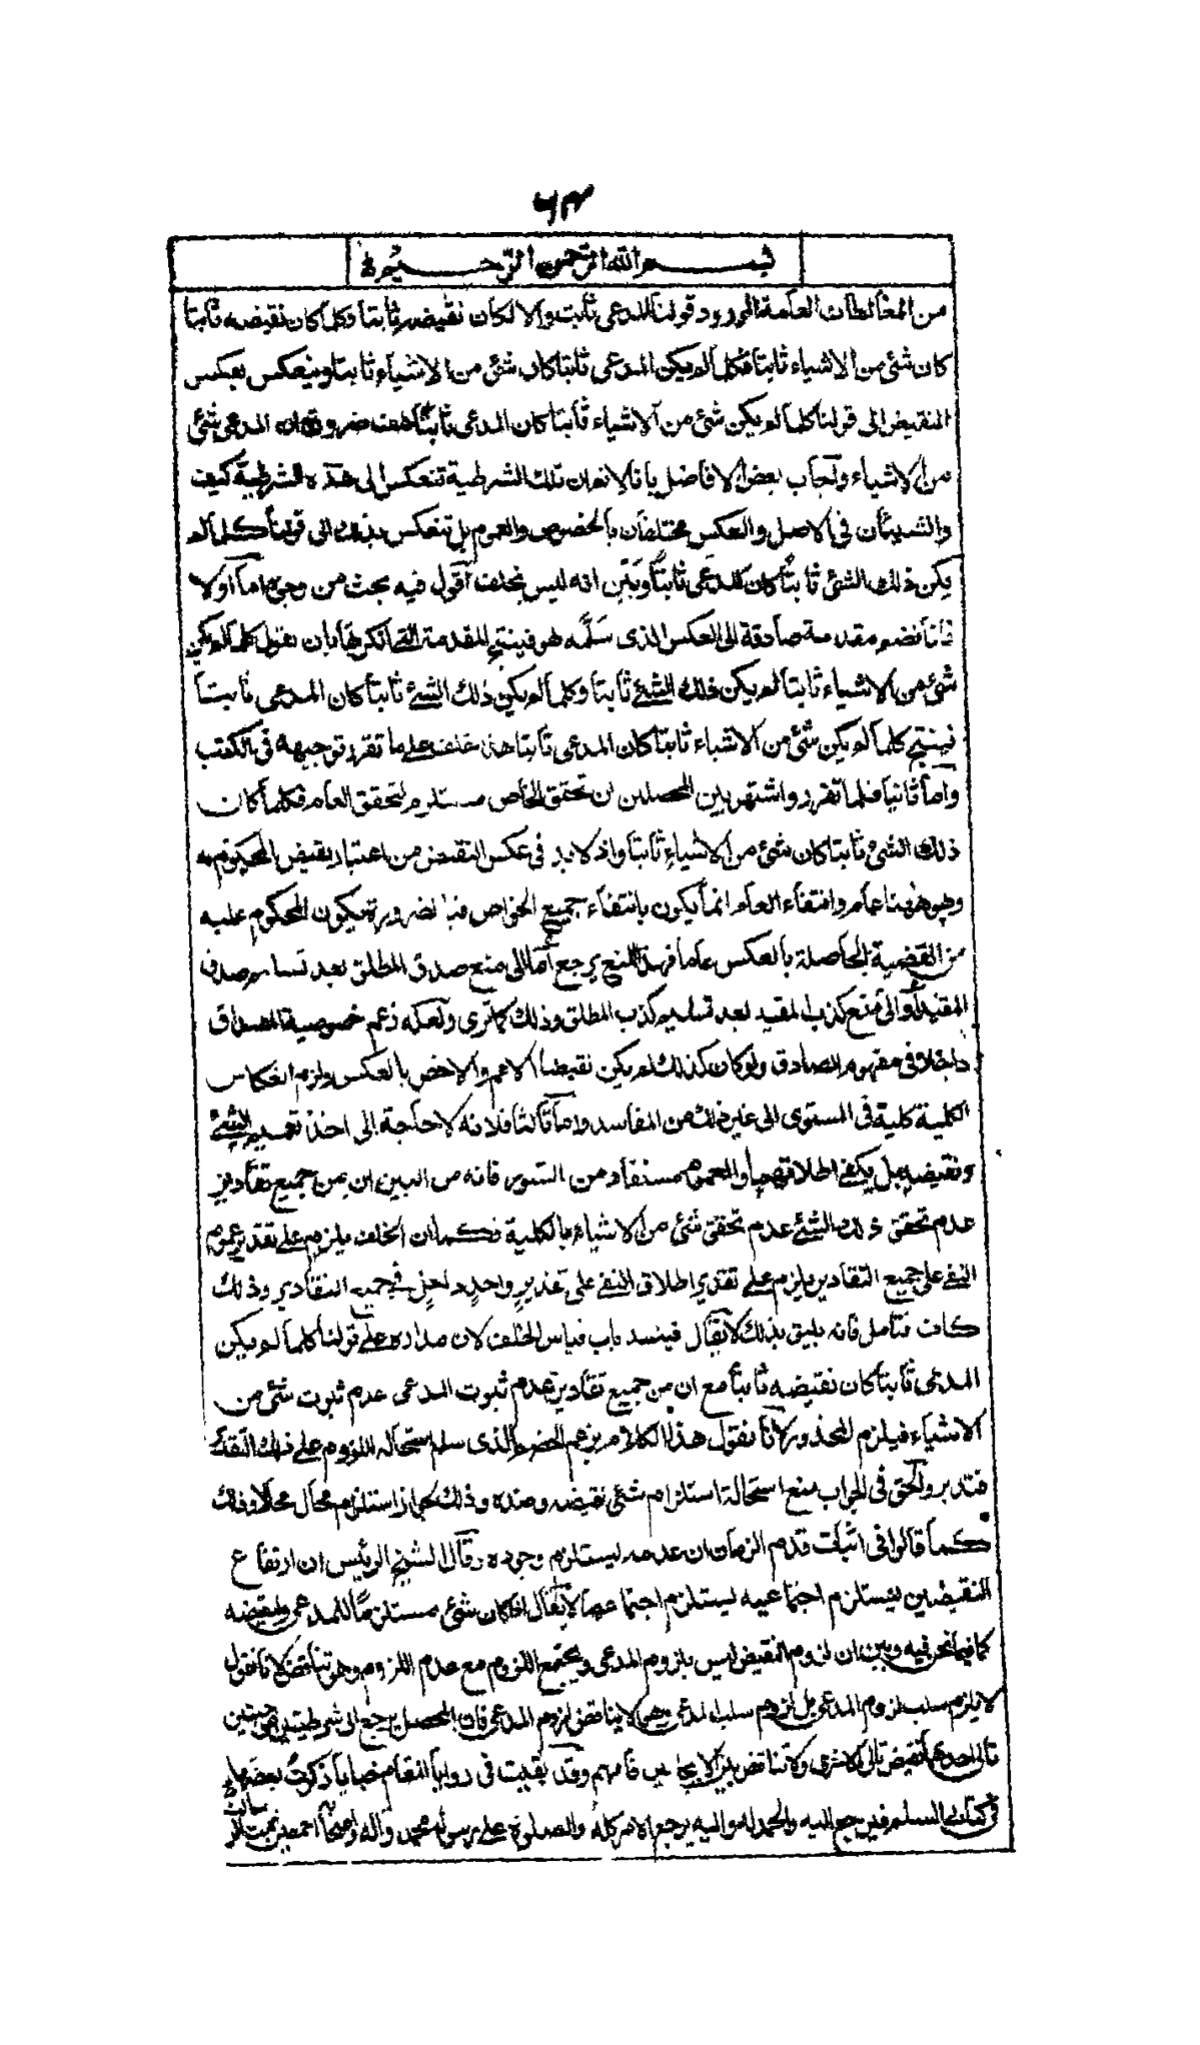 ۶۴
بسم الله الرحمن الرحيم
من المغالطات العامة الورود قولنا المدعى ثابت والا لكان نقيضه ثابتا وكلما كان نقيضه ثابتا
كان شئ من الاشياء ثابتا فكلما لم يكن المدعى ثابتا كان شئ من الاشياء ثابتا وينعكس بعكس
النقيض الى قولنا كلما لم يكن شئ من الاشياء ثابتا كان المدعى ثابتا هف ضرورة ان المدعى شئ
من الاشياء واجاب بعض الافاضل بانا لا نعلم ان تلك الشرطية تنعكس الى هذه الشرطية كيف
والشيئان فى الاصل والعكس مختلفان بالخصوص والعموم بل تنعكس بذلك الى قولنا كلما لم
يكن ذلك الشئ ثابتا كان المدعى ثابتا وبين انه ليس بخلف اقول فيه بحث من وجوه اما اولا
فانا نضم مقدمة صادقة الى العكس الذى سلمه هو فينتج المقدمة التى انكرها بان نقول كلما لم يكن
شئ من الاشياء ثابتا لم يكن ذلك الشئ ثابتا وكلما لم يكن ذلك الشئ ثابتا كان المدعى ثابتا
فينتج كلما لم يكن شئ من الاشياء ثابتا كان المدعى ثابتا هذا خلف على ما تقرر توجيهه فى الكتب
واما ثانيا فلما تقرر واشتهر بين المحصلين ان تحقق الخاص مستلزم لتحقق العام فكلما كان
ذلك الشئ ثابتا كان شئ من الاشياء ثابتا واذ لا بد فى عكس النقيض من اعتبار نقيض المحكوم به
وهو ههنا عام وانتفاء العام انما يكون بانتفاء جميع الخواص فبالضرورة يكون المحكوم عليه
من القضية الحاصلة بالعكس عاما فهذا المنع يرجع اما الى منع صدق المطلق بعد تسليم صدق
المقيد او الى منع كذب المقيد بعد تسليم كذب المطلق وذلك كما ترى ولعله زعم خصوصية المصداق
داخلا فى مفهوم الصادق ولو كان كذلك لم يكن نقيضا الاعم والاخص بالعكس ولزم انعكاس
الكلية كلية فى المستوى الى غير ذلك من المفاسد واما ثالثا فلانه لا حاجة الى اخذ تعميم الشئ
ونقيضه بل يكفى اطلاقهما والعموم مستفاد من السور فانه من البين ان من جميع تقادير
عدم تحقق ذلك الشئ عدم تحقق شئ من الاشياء بالكلية فكما ان الخلف يلزم على تقدير عموم
النفى على جميع التقادير يلزم على تقدير اطلاق النفى على تقدير واحد داخل فى جميع التقادير وذلك
كاف فتامل فانه يليق بذلك لا يقال فينسد باب قياس الخلف لان مداره على قولنا كلما لم يكن
المدعى ثابتا كان نقيضه ثابتا مع ان من جميع تقادير عدم ثبوت المدعى عدم ثبوت شئ من
الاشياء فيلزم المحذور لانا نقول هذا الكلام يزعم الخصم الذى سلم استحالة اللزوم على ذلك التقدير
فتدبر والحق فى الجواب منع استحالة استلزام شئ نقيضه وضده وذلك لجواز استلزام محال محالا وذلك
كما قالوا فى اثبات قدم الزمان ان عدمه يستلزم وجوده وقال الشيخ الرئيس ان ارتفاع
النقيضين يستلزم اجتماعهما لا يقال اذا كان شئ مستلزما للمدعى ولنقيضه
كما فيما نحن فيه وبين ان لزوم النقيض ليس بلزوم المدعى ويجتمع اللزوم مع عدم اللزوم وهو تناقض لانا نقول
لا يلزم سلب لزوم المدعى بل لزوم سلب المدعى وهى لا يناقض لزوم المدعى فان المحصل يرجع الى شرطيتين موجبتين
تالى احدهما نقيض تالى الاخرى ولا تناقض بين الايجابيين فافهم وقد بقيت فى زوايا المقام خبايا ذكرت بعضها
فى كتابى السلم فليرجع اليه والحمد لله واليه يرجع الامر كله والصلوة على رسوله محمد وآله واصحابه اجمعين تمت الرسالة